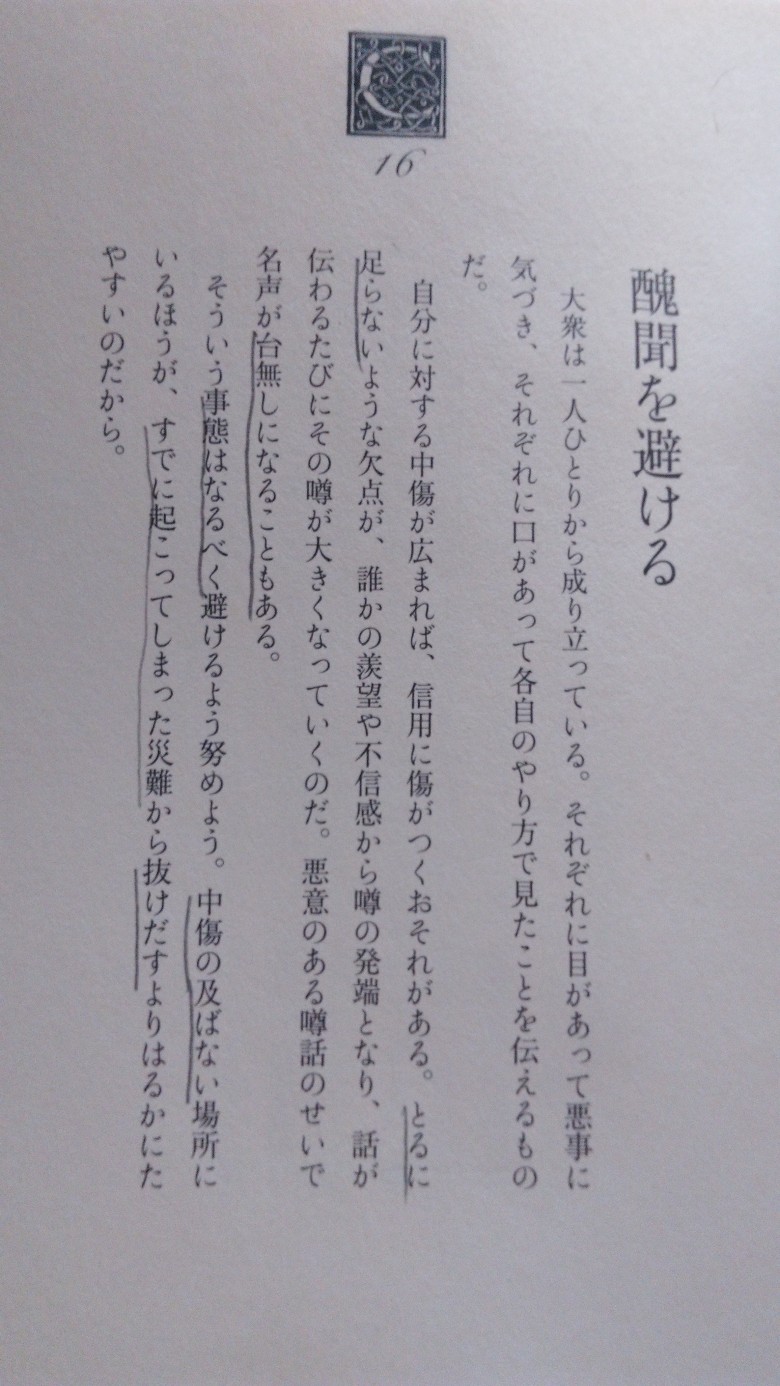 C
16
醜聞を避ける
大衆は一人ひとりから成り立っている。それぞれに目があって悪事に
気づき、それぞれに口があって各自のやり方で見たことを伝えるもの
だ。
自分に対する中傷が広まれば、信用に傷がつくおそれがある。とるに
足らないような欠点が、誰かの羨望や不信感から噂の発端となり、話が
伝わるたびにその噂が大きくなっていくのだ。悪意のある噂話のせいで
名声が台無しになることもある。
そういう事態はなるべく避けるよう努めよう。中傷の及ばない場所に
いるほうが、すでに起こってしまった災難から抜けだすよりはるかにた
やすいのだから。